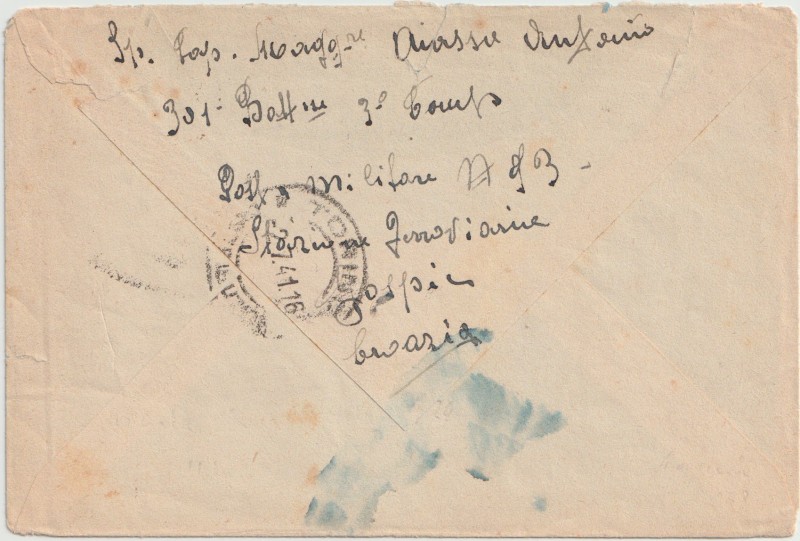 Sp. Cap. Magg.re Aiassa Antonio
301 Batt.ne 3ª Comp
Posta Militare N 83 -
Stazione Ferroviaria
Gospic
Croazia
TORINO
7.41.16